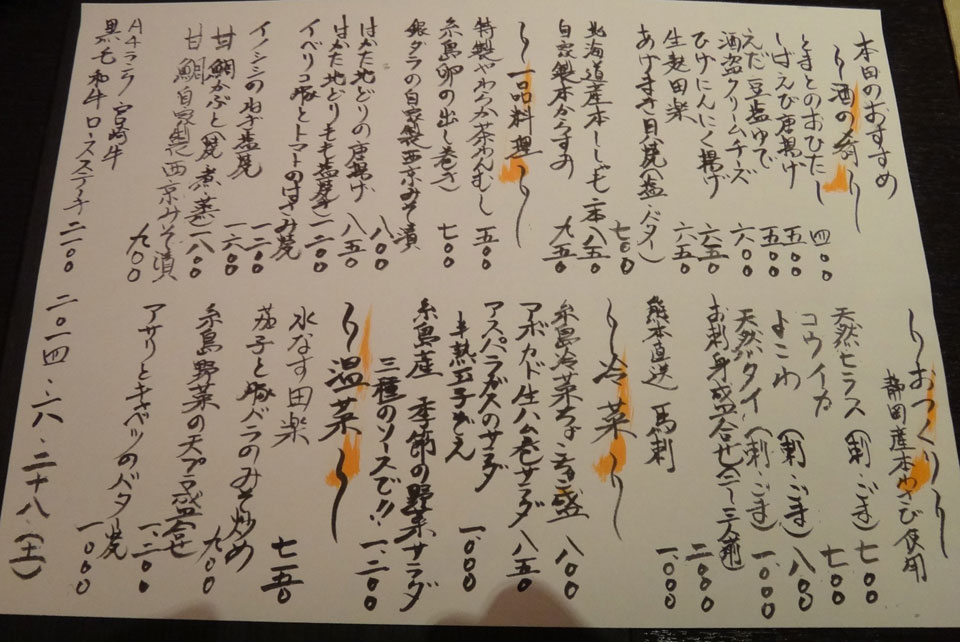 本田のおすすめ
〜酒の肴〜
ときとのおひたし 四〇〇
しばえび唐揚げ 五〇〇
えだ豆塩ゆで 五〇〇
酒盗クリームチーズ 六〇〇
ひげにんにく揚げ 六五〇
生麩田楽 六五〇
あげまき貝焼(塩 バター) 七〇〇
北海道産本ししゃも二本 八五〇
自家製本からすみ 九五〇
〜一品料理〜
特製やわらか茶わんむし 五〇〇
糸島卵の出し巻き 七〇〇
銀ダラの自家製西京みそ漬 八〇〇
はかた地どりの唐揚げ 八五〇
はかた地どりモモ塩焼き 一二〇〇
イベリコ豚とトマトのはさみ焼 一二〇〇
イノシシのねぎ塩焼 一六〇〇
甘鯛かぶと(焼・煮・蒸) 一八〇〇
甘鯛自家製西京みそ漬 九〇〇
A4ランク宮崎牛
黒毛和牛ロースステーキ 二一〇〇
〜おつくり〜
静岡産本わさび使用
天然ヒラス(刺・ごま) 七〇〇
コウイカ 七〇〇
よこわ(刺・ごま) 八〇〇
天然ダイ(刺・ごま) 一、〇〇〇
お刺身盛合せ(二〜三人前) 二、〇〇〇
熊本直送 馬刺 一、〇〇〇
〜冷菜〜
糸島冷菜ちょこっと盛 八〇〇
アボカド生ハム巻サラダ 八五〇
アスパラガスのサラダ
半熟玉子ぞえ 一、〇〇〇
糸島産 季節の野菜サラダ
三種のソースで!! 一、二〇〇
〜温菜〜
水なす田楽 七五〇
茄子と豚バラのみそ炒め 九〇〇
糸島野菜の天プラ盛合せ 一、二〇〇
アサリとキャベツのバター焼 一、〇〇〇
二〇一四・六・二十八(土)